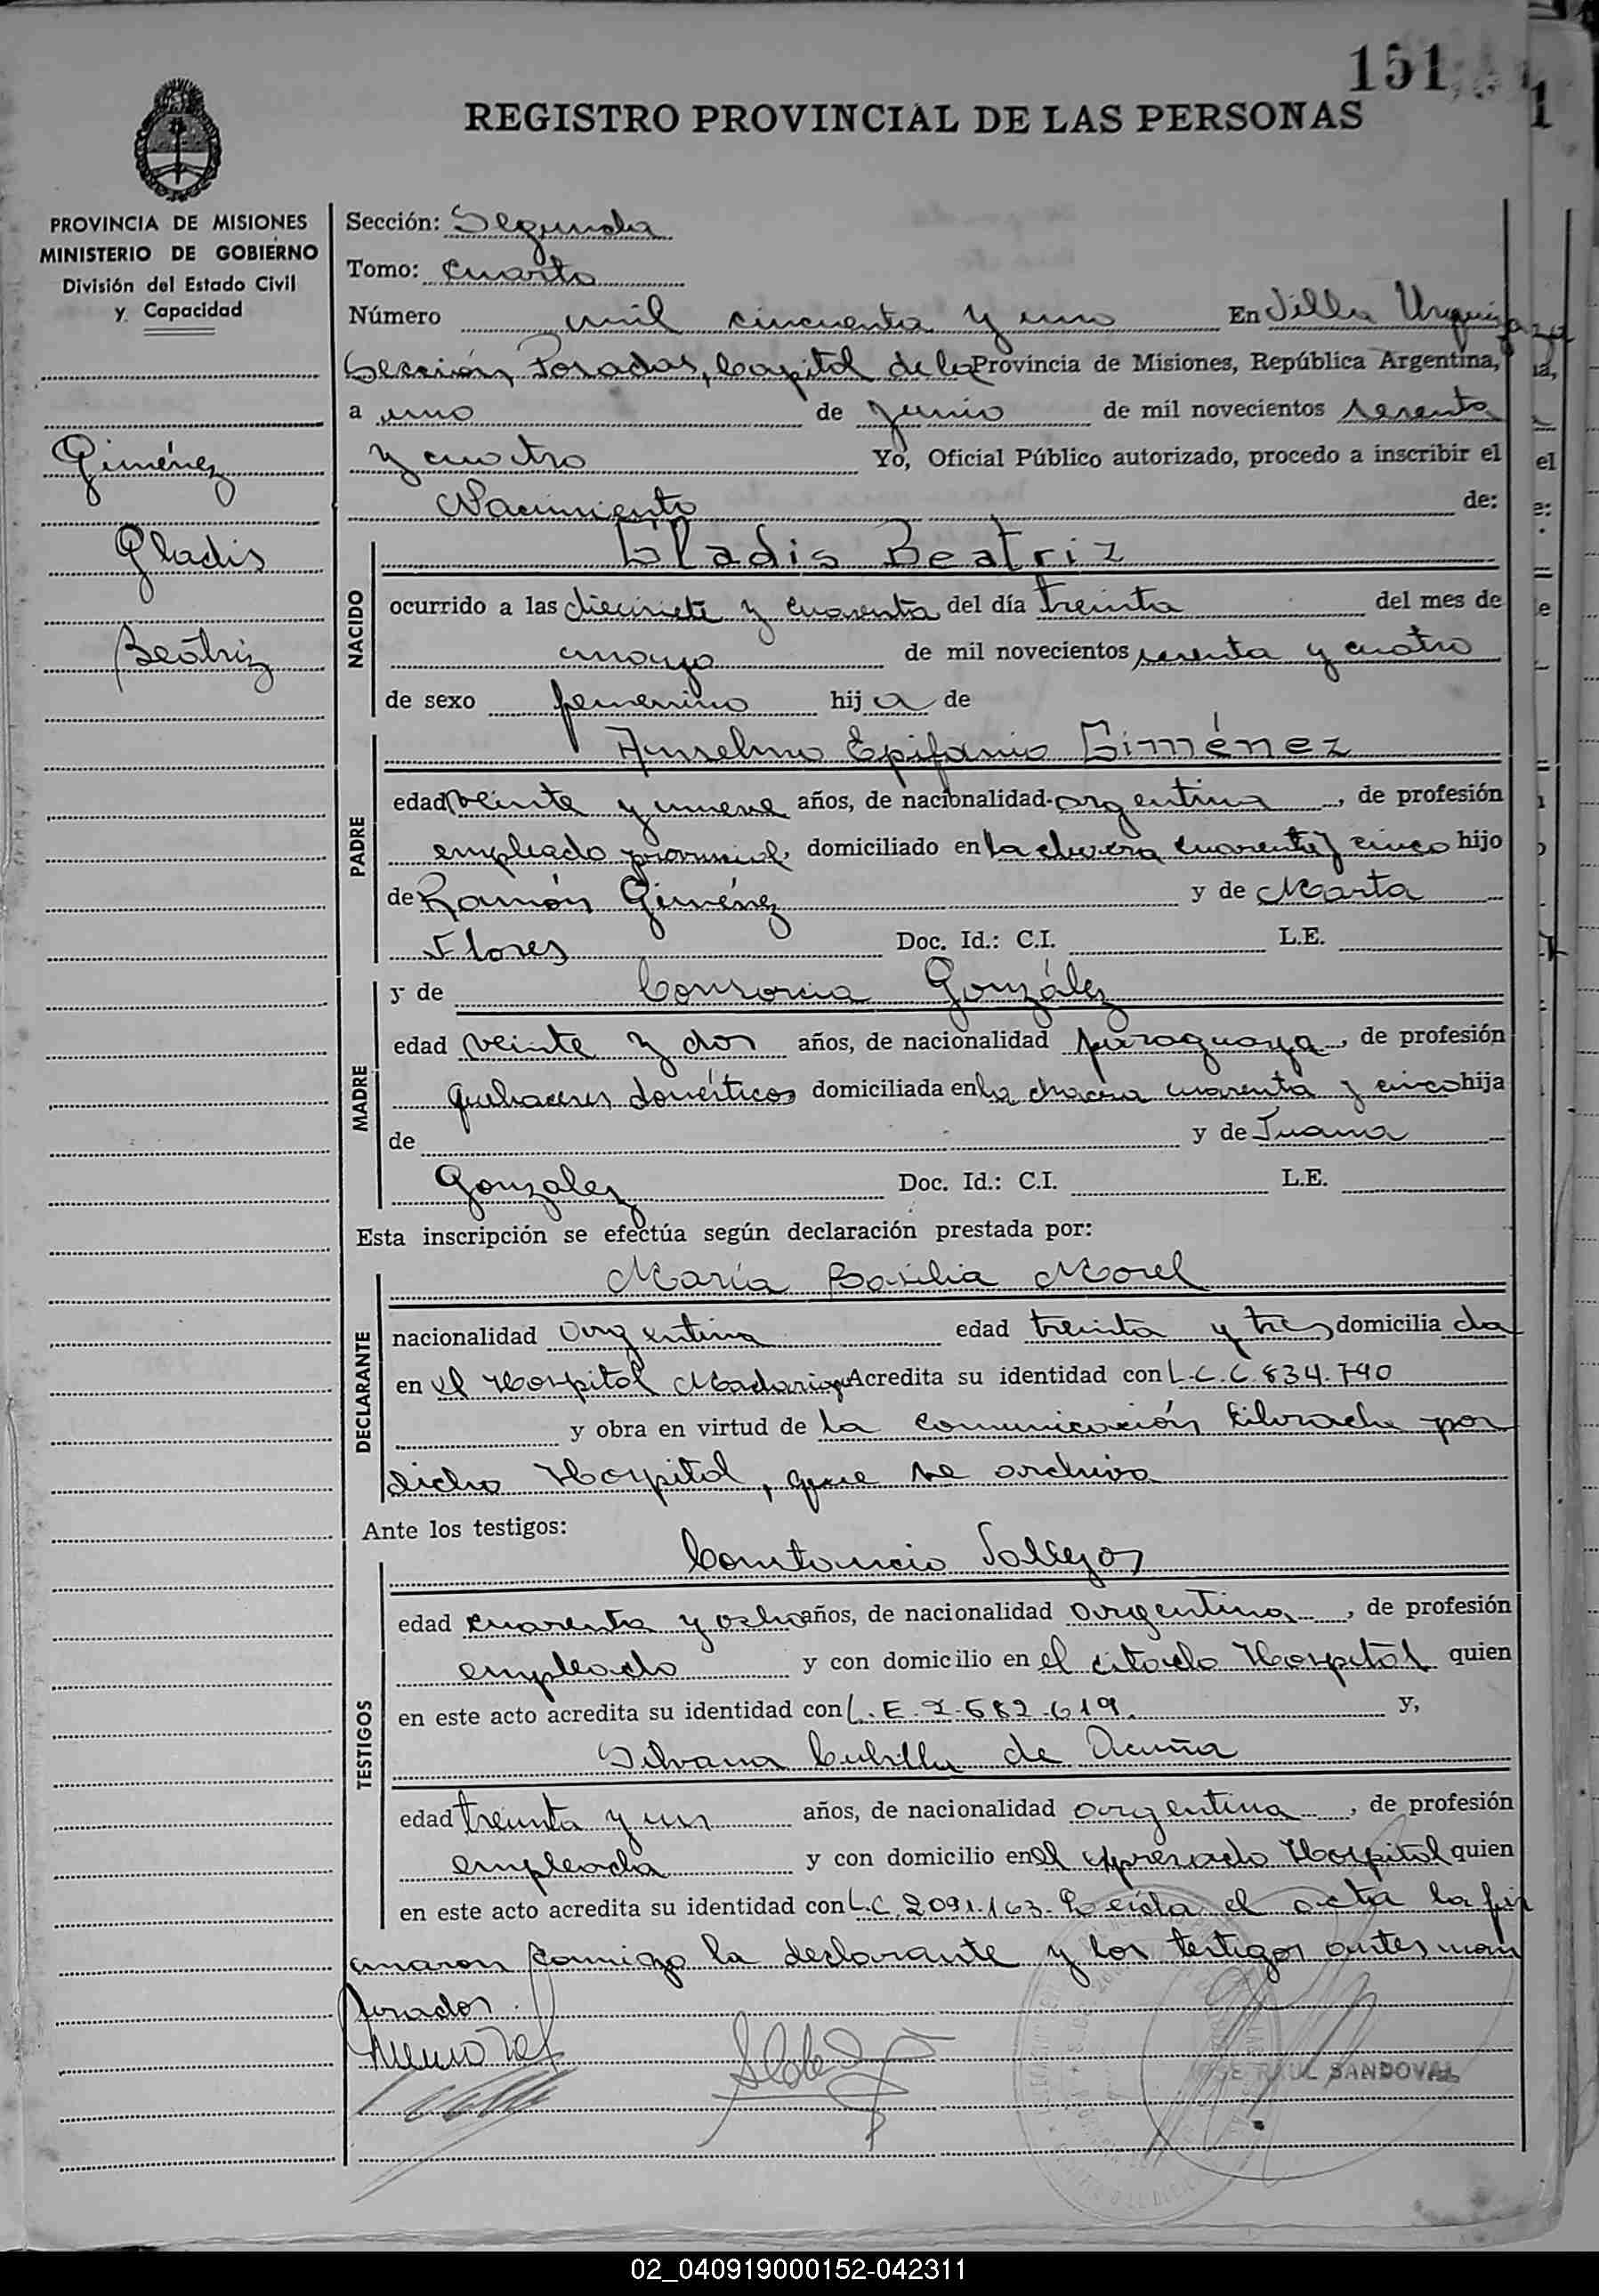 151
1
REGISTRO PROVINCIAL DE LAS PERSONAS
PROVINCIA DE MISIONES
MINISTERIO DE GOBIERNO
División del Estado Civil
y Capacidad
Giménez
Gladis
Beatriz
Sección: Segunda
Tomo: Cuarto
Número mil cincuenta y uno En Villa Urquiza
Sección Posadas, Capital de la Provincia de Misiones, República Argentina,
a uno de Junio de mil novecientos sesenta
y cuatro Yo, Oficial Público autorizado, procedo a inscribir el
Nacimiento de:
NACIDO
Gladis Beatriz
ocurrido a las diecisiete y cuarenta del día treinta del mes de
mayo de mil novecientos sesenta y cuatro
de sexo femenino hija de
PADRE
Anselmo Epifanio Giménez
edad veinte y nueve años, de nacionalidad argentina, de profesión
empleado provincial, domiciliado en la chacra cuarenta y cinco hijo
de Ramón Giménez y de Marta
Flores Doc. Id.: C.I. L.E.
MADRE
y de Consorcia González
edad veinte y dos años, de nacionalidad paraguaya, de profesión
quehaceres domésticos domiciliada en la chacra cuarenta y cinco hija
de y de Juana
Gonzalez Doc. Id.: C.I. L.E.
Esta inscripción se efectúa según declaración prestada por:
DECLARANTE
María Basilia Morel
nacionalidad argentina edad treinta y tres domiciliada
en el Hospital Madariaga Acredita su identidad con L.C. 6.834.790
y obra en virtud de la comunicación librada por
dicho Hospital, que se archiva
Ante los testigos:
TESTIGOS
Constancio Vallejos
edad cuarenta y ocho años, de nacionalidad argentina, de profesión
empleado y con domicilio en el citado Hospital quien
en este acto acredita su identidad con L.E. 2.582.619. y,
Silvana Cubilla de Acuña
edad treinta y un años, de nacionalidad argentina, de profesión
empleada y con domicilio en el expresado Hospital quien
en este acto acredita su identidad con L.C. 2.091.163. Leída el acta la fir
maron conmigo la declarante y los testigos antes men
cionados.
JOSE RAUL SANDOVAL
02_040919000152-042311